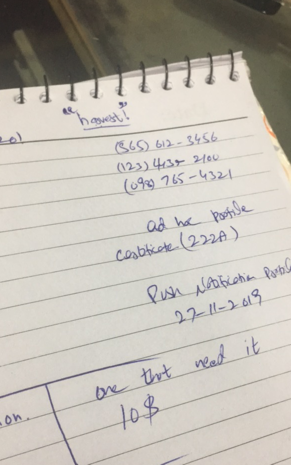 "honest!"
(365) 612-3456
(123) 4132 2100
(098) 765-4321
ad hoc profile
certificate (222A)
Push Notification
27-11-2019
one that need it
on. 10$